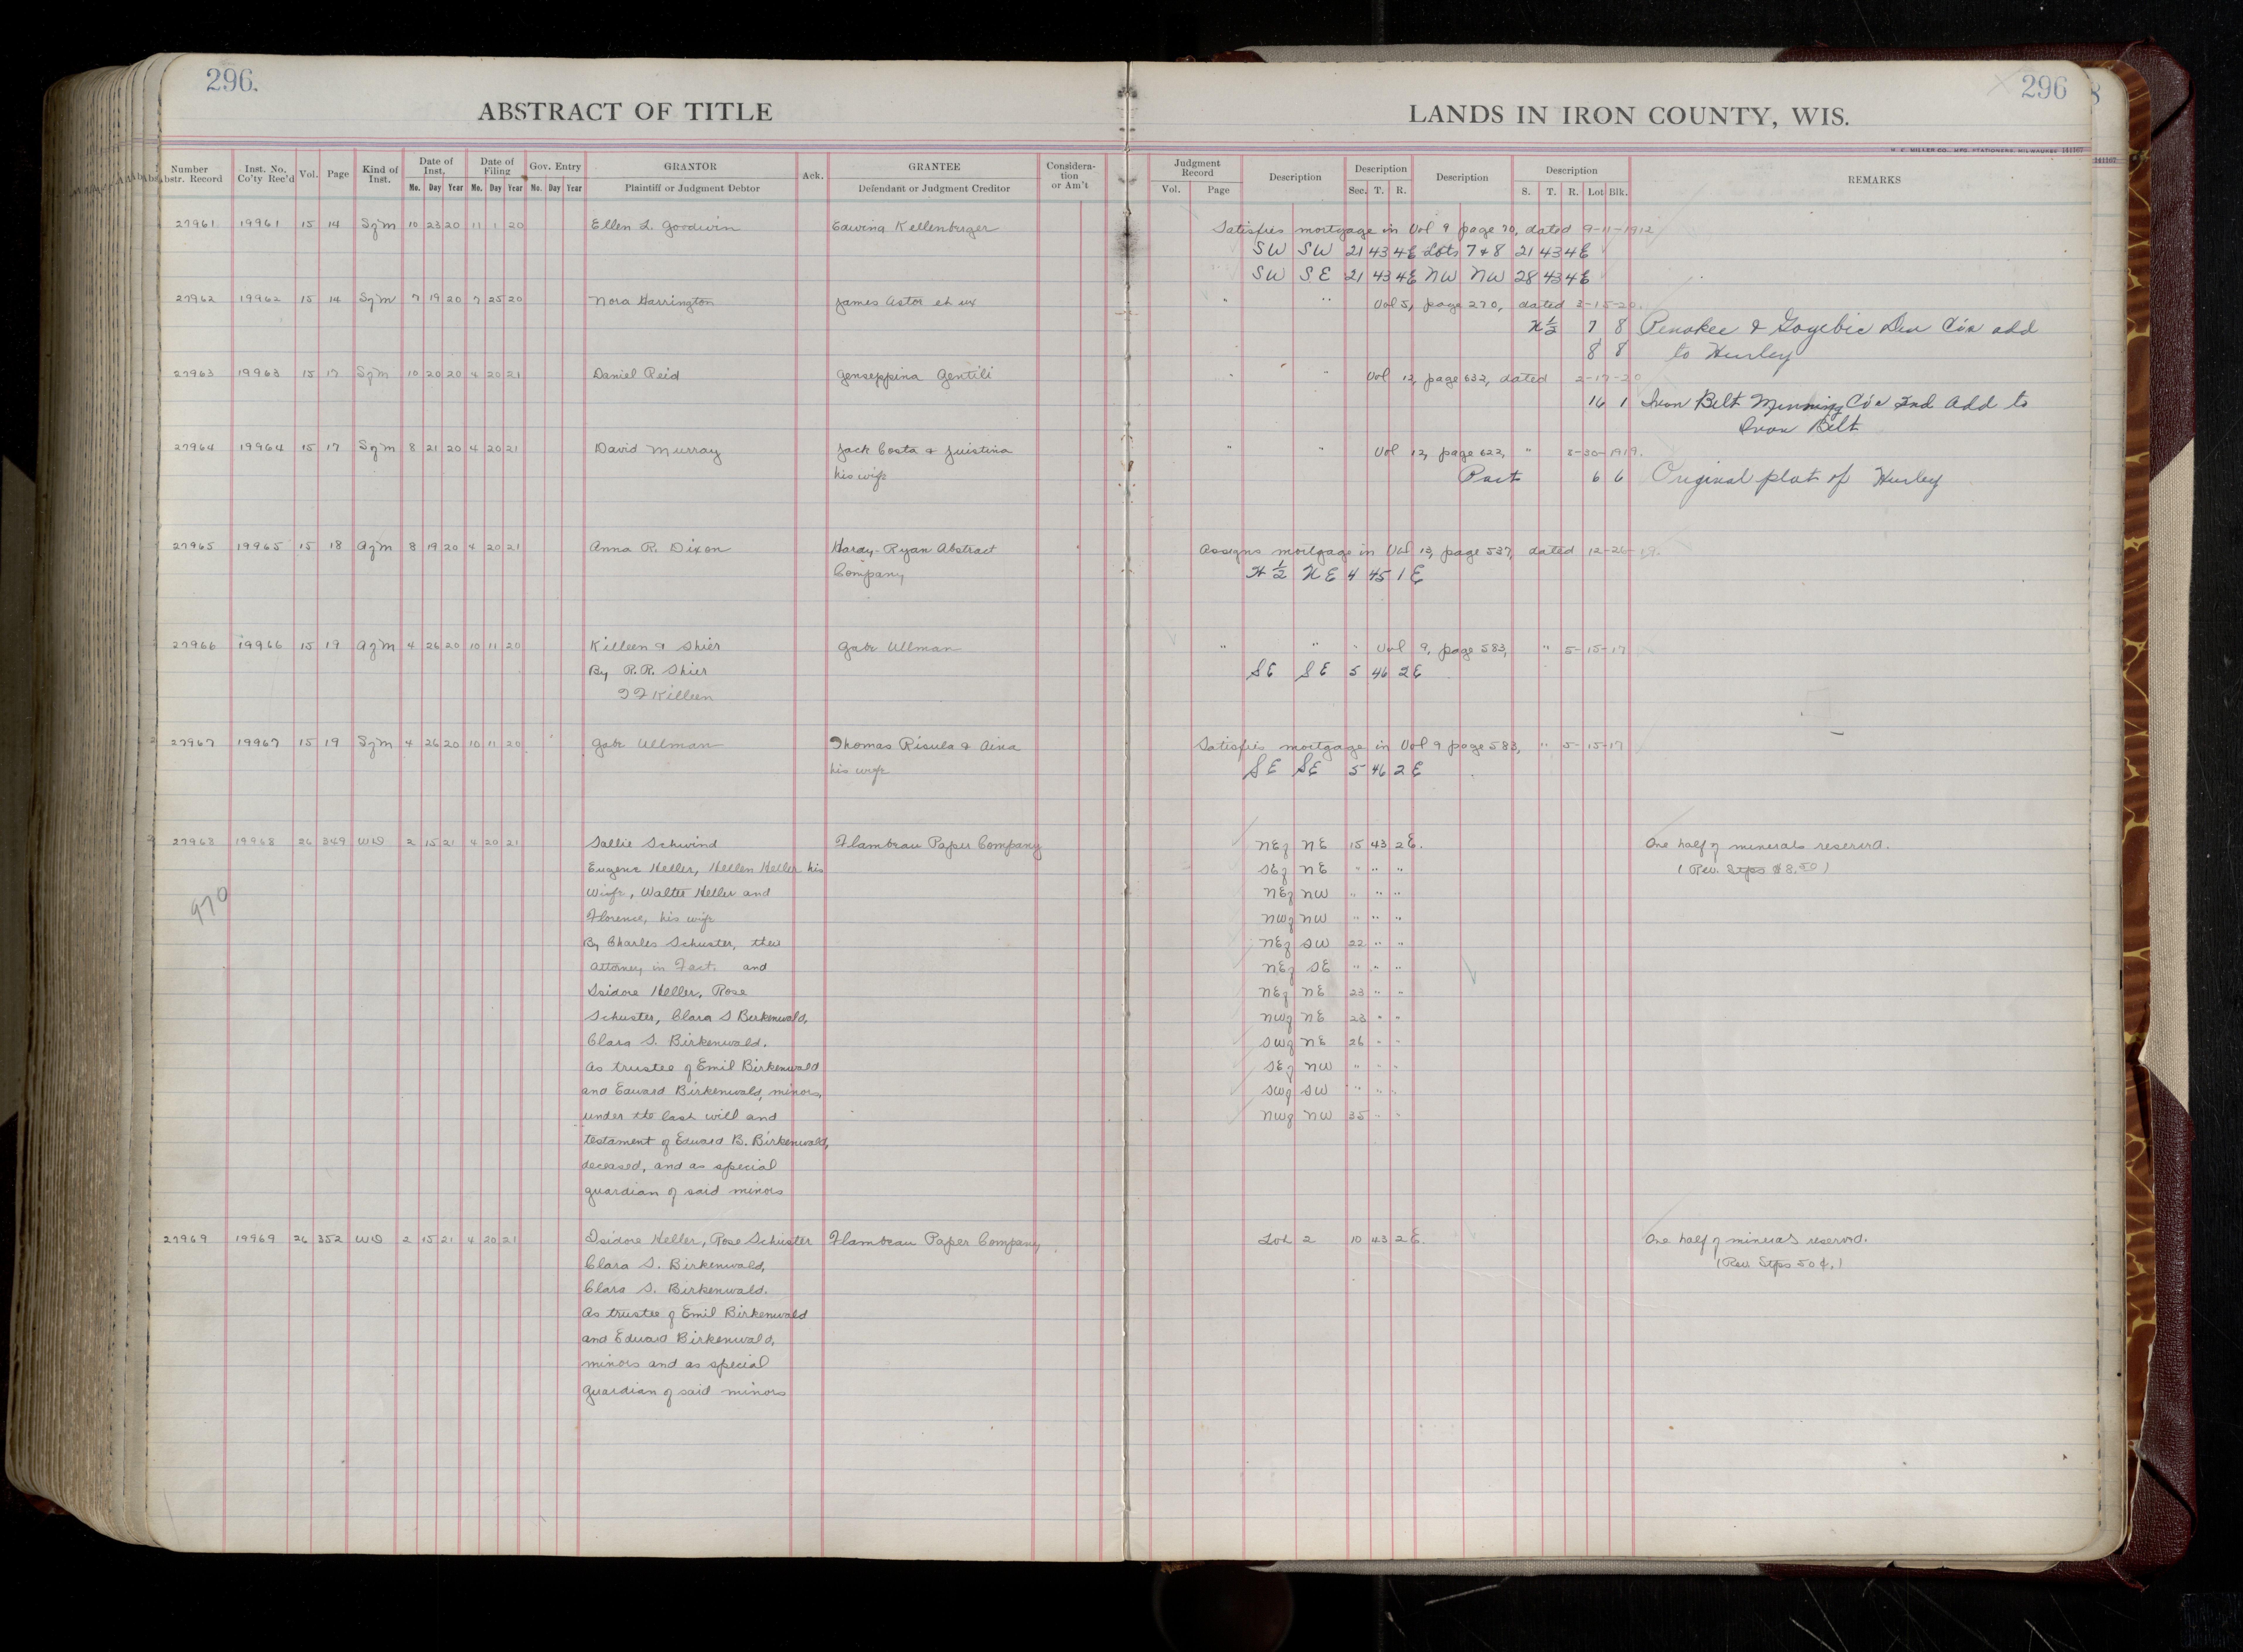 296.
296
ABSTRACT OF TITLE
LANDS IN IRON COUNTY, WIS.
H. C. MILLER CO., MFG. STATIONERS, MILWAUKEE 141167
Number Abstr. Record | Inst. No. Co'ty Rec'd | Vol. | Page | Kind of Inst. | Date of Inst. Mo. Day Year | Date of Filing Mo. Day Year | Gov. Entry No. Day Year | GRANTOR Plaintiff or Judgment Debtor | Ack. | GRANTEE Defendant or Judgment Creditor | Considera-tion or Am't | Judgment Record Vol. Page | Description | Description Sec. T. R. | Description | Description S. T. R. Lot Blk. | REMARKS
27961 19961 15 14 SqM 10 23 20 11 1 20 Ellen L. Goodwin Edwina Kellenberger Satisfies mortgage in Vol 9 page 70, dated 9-11-1912
SW SW 21 43 4E Lots 7 & 8 21 43 4E
SW SE 21 43 4E NW NW 28 43 4E
27962 19962 15 14 SqM 7 19 20 7 25 20 Nora Harrington James Astor et ux " " Vol 5, page 270, dated 3-15-20.
N½ 7 8 Penokee & Gogebic Dev Co's add
8 8 to Hurley
27963 19963 15 17 SqM 10 20 20 4 20 21 Daniel Reid Genseppina Gentili " " Vol 12, page 632, dated 2-17-20
16 1 Iron Belt Minning Co's 2nd Add to
Iron Belt
27964 19964 15 17 SqM 8 21 20 4 20 21 David Murray Jack Costa & Juistina " " Vol 12, page 622, " 8-30-1919.
his wife Part 6 6 Original plat of Hurley
27965 19965 15 18 AqM 8 19 20 4 20 21 Anna R. Dixon Hardy-Ryan Abstract Assigns mortgage in Vol 13, page 537, dated 12-26-19.
Company N½ NE 4 45 1E
27966 19966 15 19 AqM 4 26 20 10 11 20 Killeen & Shier Gabe Ullman " " " Vol 9, page 583, " 5-15-17
By R.R. Shier SE SE 5 46 2E
Killeen
27967 19967 15 19 SqM 4 26 20 10 11 20 Gabe Ullman Thomas Risula & Aina Satisfies mortgage in Vol 9 page 583, " 5-15-17
his wife SE SE 5 46 2E
27968 19968 26 349 WD 2 15 21 4 20 21 Sallie Schwind Flambeau Paper Company NE of NE 15 43 2E. One half of minerals reserved.
Eugene Heller, Hellen Heller his SE of NE " " " (Rev. Stps $8.50)
970 Wife, Walter Heller and NE of NW " " "
Florence, his wife NW of NW " " "
By Charles Schuster, their NE of SW 22 " "
Attorney in Fact. and NE of SE " " "
Isidore Heller, Rose NE of NE 23 " "
Schuster, Clara S Birkenwald, NW of NE 23 " "
Clara S. Birkenwald. SW of NE 26 " "
As trustee of Emil Birkenwald SE of NW " " "
and Edward Birkenwald, minors, SW of SW " " "
under the last will and NW of NW 35 " "
testament of Edward B. Birkenwald,
deceased, and as special
guardian of said minors
27969 19969 26 352 WD 2 15 21 4 20 21 Isidore Heller, Rose Schuster Flambeau Paper Company Lot 2 10 43 2E. One half of minerals reserved.
Clara S. Birkenwald, (Rev. Stps 50¢.)
Clara S. Birkenwald.
As trustee of Emil Birkenwald
and Edward Birkenwald,
minors and as special
guardian of said minors